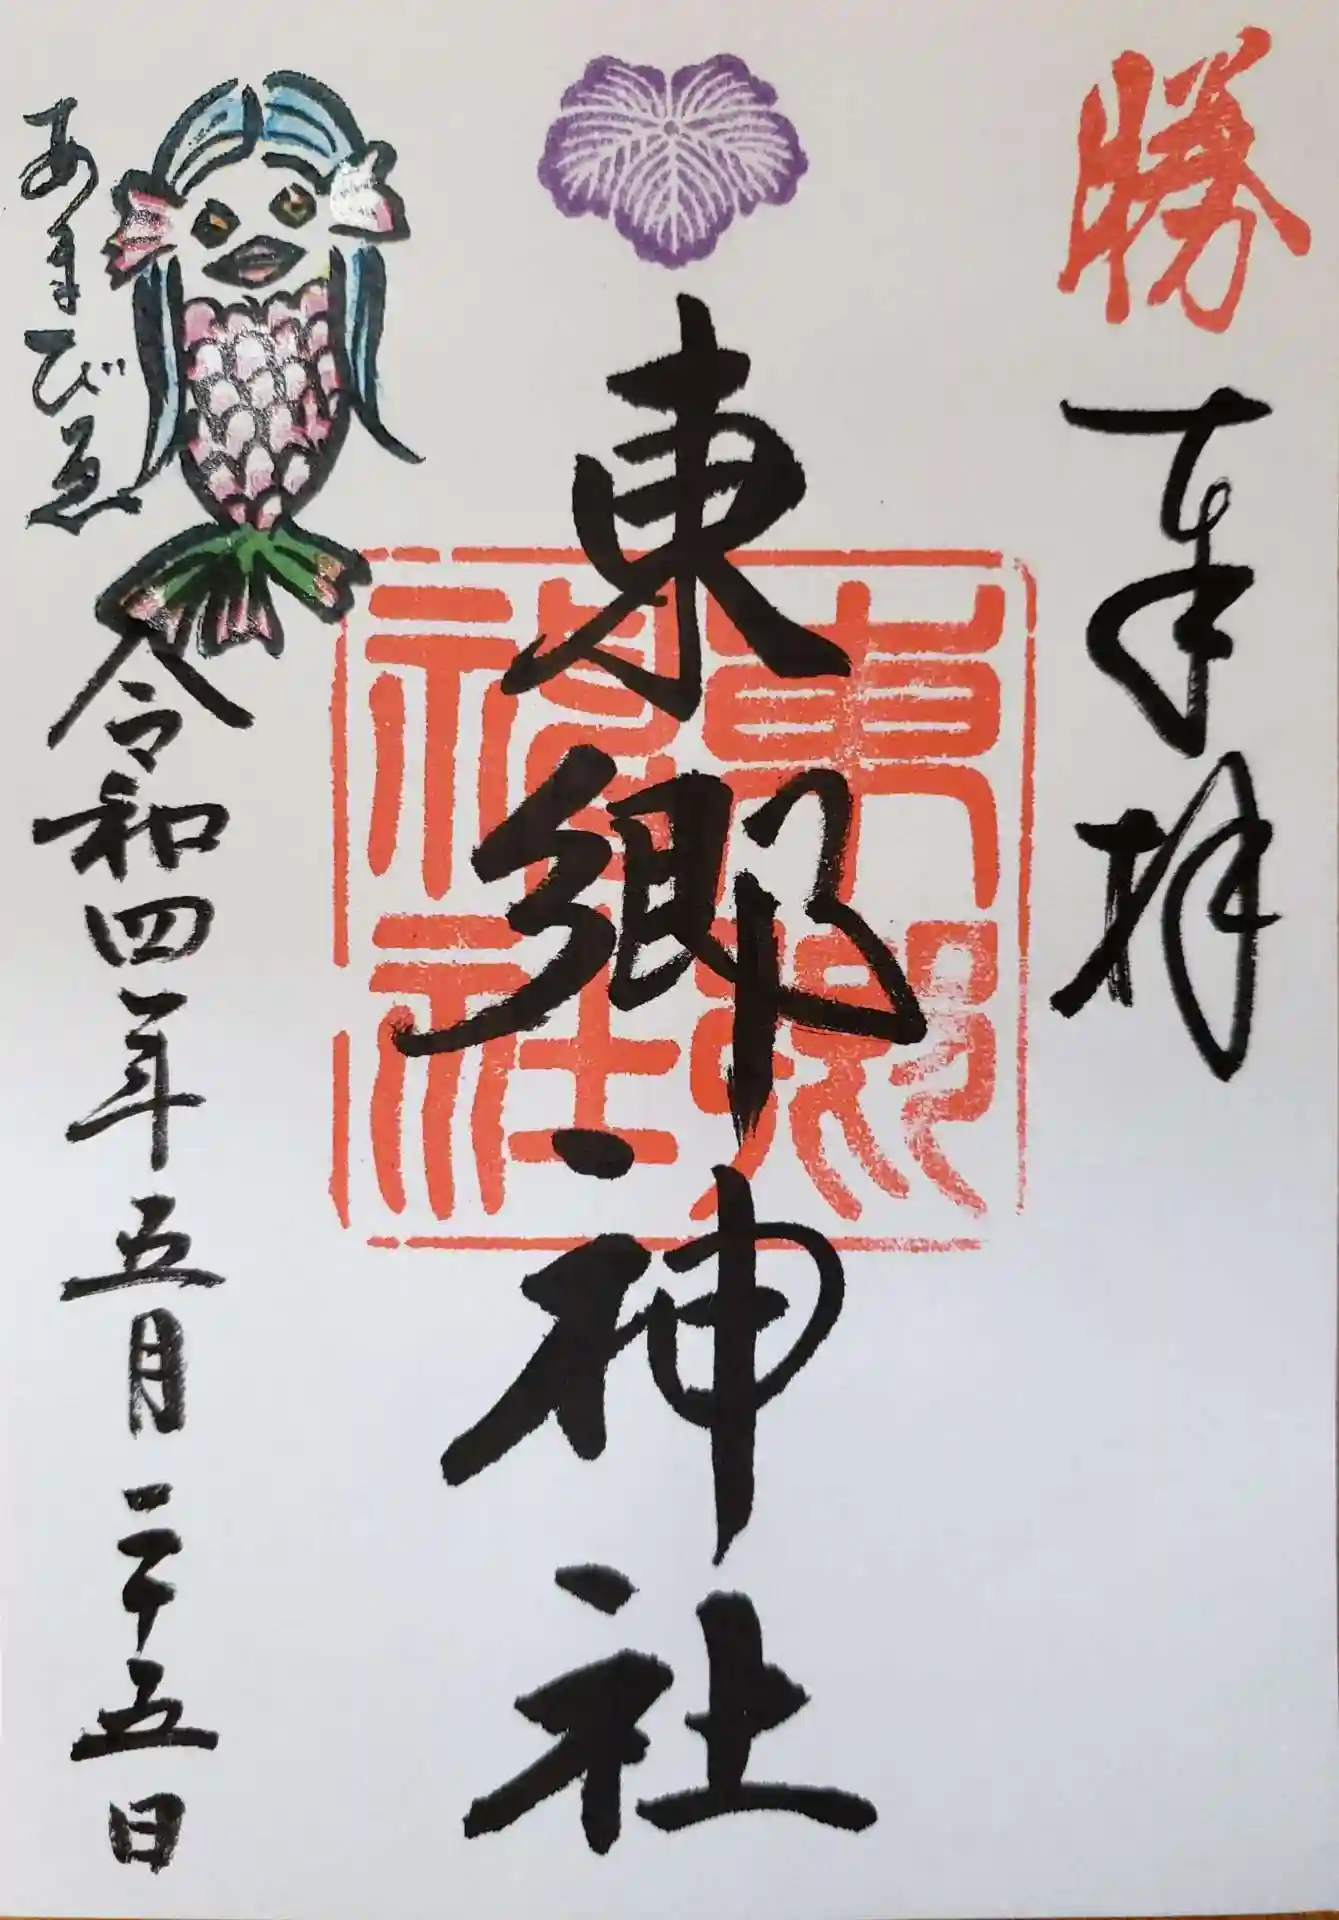 勝
奉拝
東郷神社
東郷神社
あまびゑ
令和四年五月二十五日